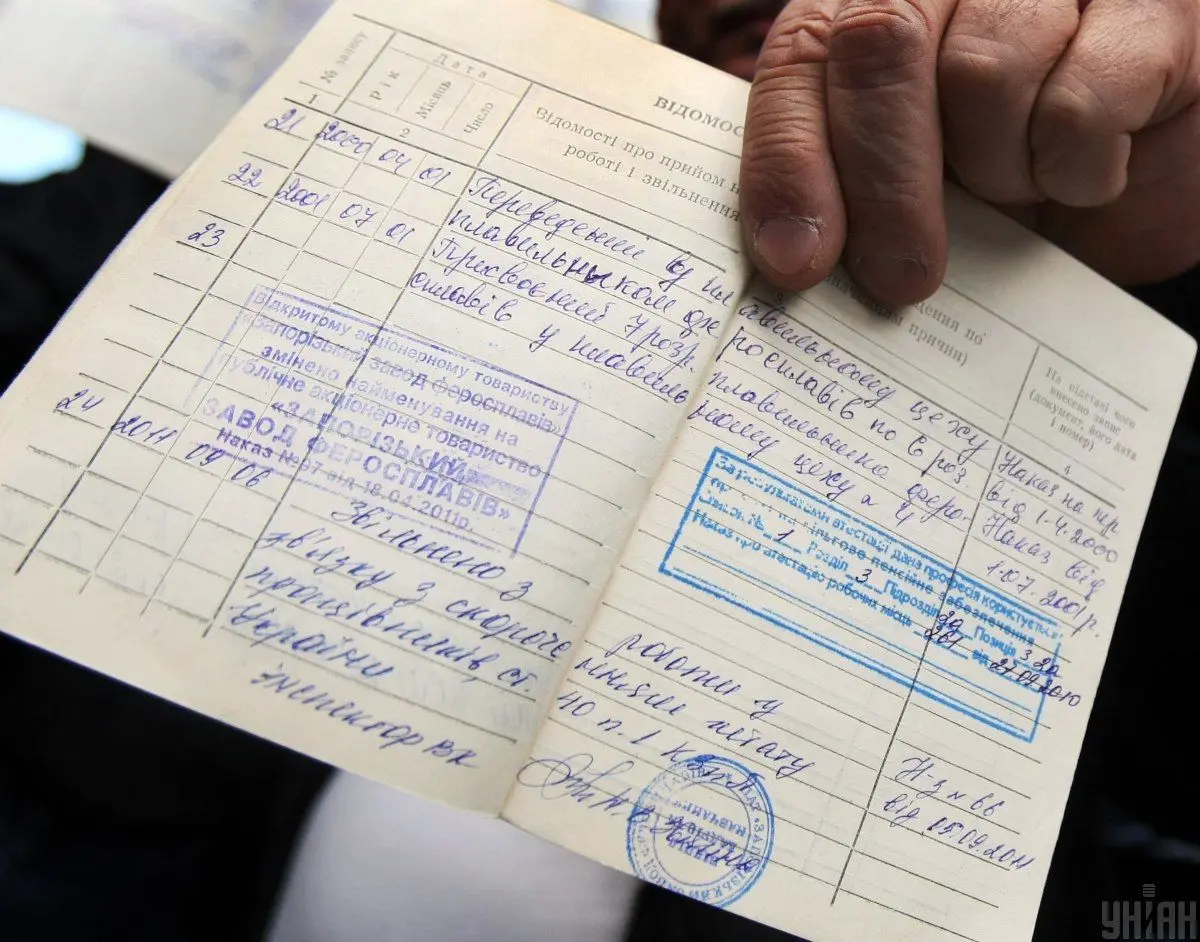 ВІДОМОС
№ запису
Дата
Рік
Місяць
Число
Відомості про прийом н
роботі і звільнення
ведення по
значенням причини)
На підставі чого
внесено запис
(документ, його дата
і номер)
1
2
3
4
21 2000 04 01 Переведений у пл авильному цеху Наказ на пер
плавильныком фе росплавів по 6 роз. від 1.4.2000
22 2001 07 01 Присвоєний 7 розр. плавильника феро- Наказ від
сплавів у плавиль ному цеху № 4 1.07.2001р.
23
Відкритому акціонерному товариству
«Запорізький завод феросплавів»
змінено найменування на
Публічне акціонерне товариство
«ЗАПОРІЗЬКИЙ
ЗАВОД ФЕРОСПЛАВІВ»
Наказ №97 від 18.04.2011р.
За результатами атестації дана професія користується
правом на пільгове пенсійне забезпечення
Список № 1 Розділ 3 Підрозділ 3а Позиція 3.2а
Наказ про атестацію робочих місць 267 від 27.09.2010
24 2011 09 06 Звільнено з роботи у
звязку з скороче нням штату
працівників, ст. 40 п. 1 КЗпП
України Н-з № 66
від 05.09.2011
Інспектор ВК